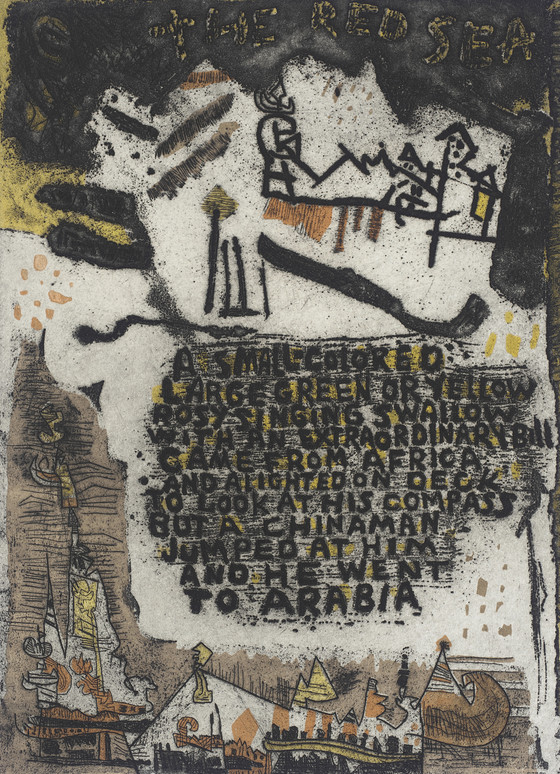 THE RED SEA
A SMALL COLORED
LARGE GREEN OR YELLOW
ROSY SINGING SWALLOW
WITH AN EXTRAORDINARY Bill
CAME FROM AFRICA
AND ALIGHTED ON DECK
TO LOOK AT HIS COMPASS
BUT A CHINAMAN
JUMPED AT HIM
AND HE WENT
TO ARABIA